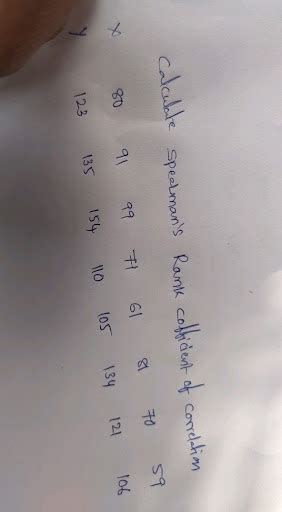 Calculate Spearman's Rank cofficient of correlation
x 80 91 99 71 61 81 70 59
y 123 135 154 110 105 134 121 106